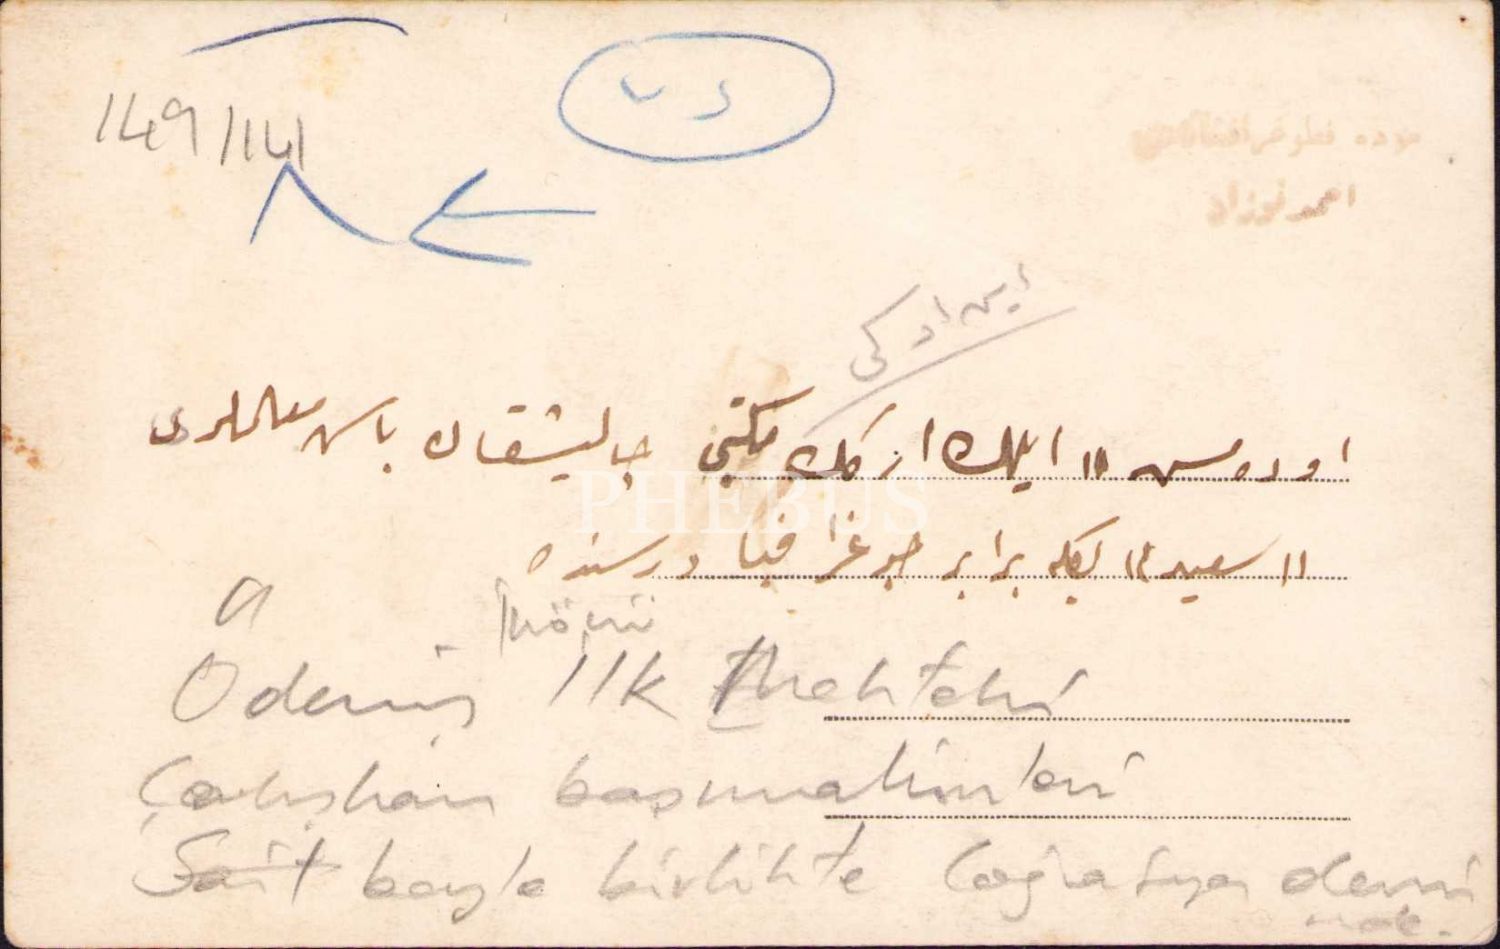 149/141
موده فطوغرافخانه‌سی
احمد نوزاد
اوده‌مش ایلك ارکك مکتبی چالیشقان باش معلملری
سعید بكله برابر جوغرافیا درسنده
Ödemiş İlk Mektebi
Çalışkan başmualimleri
Sait beyle birlikte Coğrafya dersi
nde.
PHEBUS